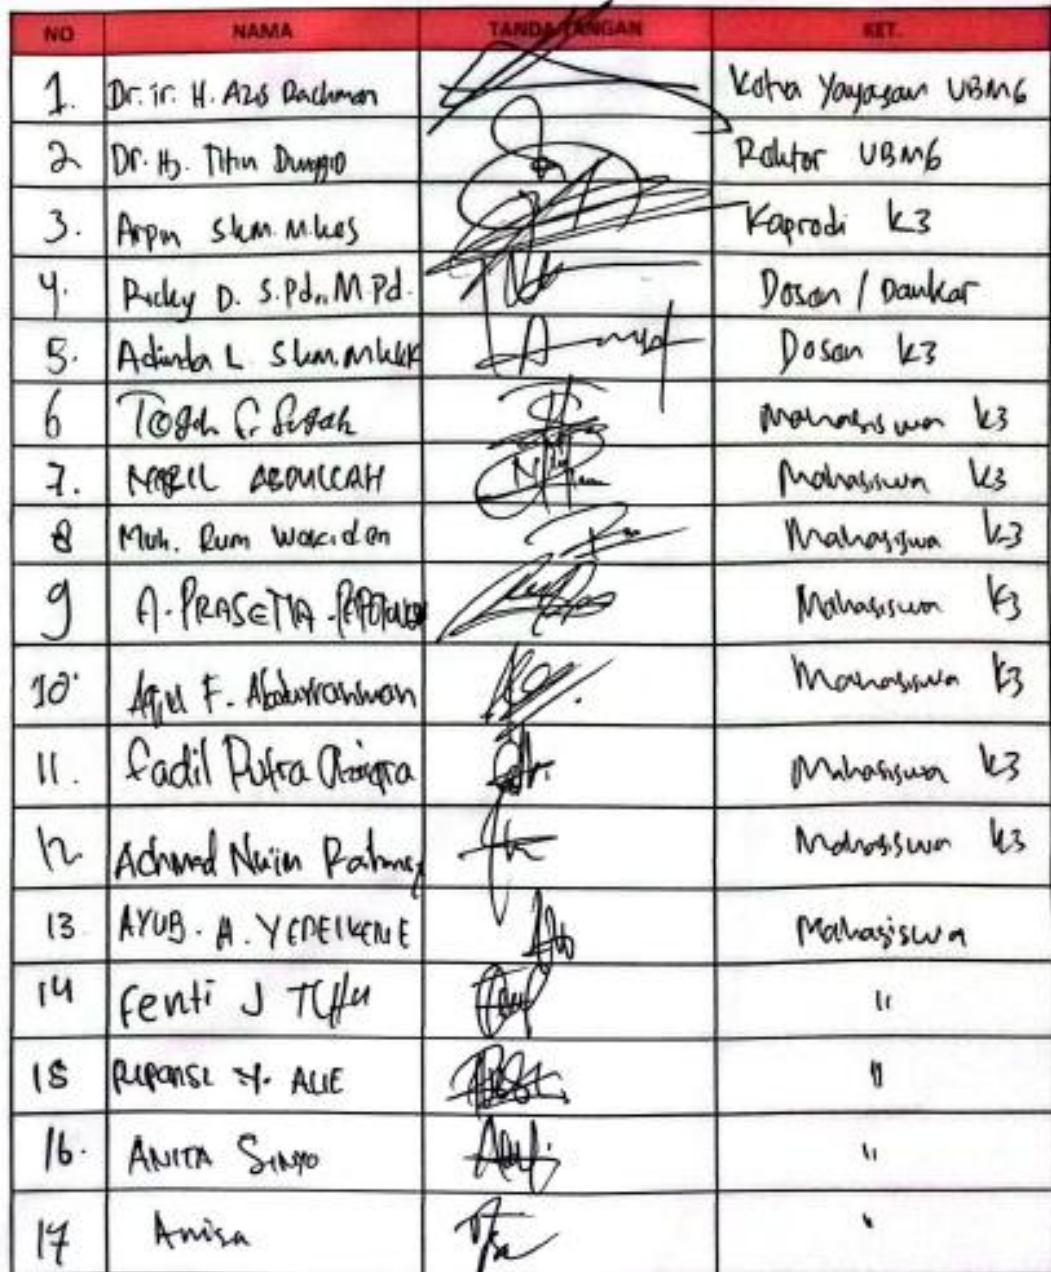 NO NAMA TANDA TANGAN KET.
1. Dr. ir. H. Azis Rachman Ketua Yayasan UBMG
2 Dr. Hj. Titin Dunggio Rektor UBMG
3. Arpin Skm. M.kes Kaprodi k3
4. Ricky D. S.Pd., M.Pd. Dosen / Damkar
5. Adinda L. Skm. Mkkk Dosen k3
6 Mahasiswa k3
7. NABIL ABDULLAH Mahasiswa k3
8 Muh. Rum Wakiden Mahasiswa k3
9 A. PRASETIA Mahasiswa k3
10. F. Abdurrahman Mahasiswa k3
11. Fadil Putra Mahasiswa k3
12 Achmad Naim Mahasiswa k3
13 AYUB. A. Mahasiswa
14 Fenti J "
15 ALIE "
16. ANITA "
17 Anisa "